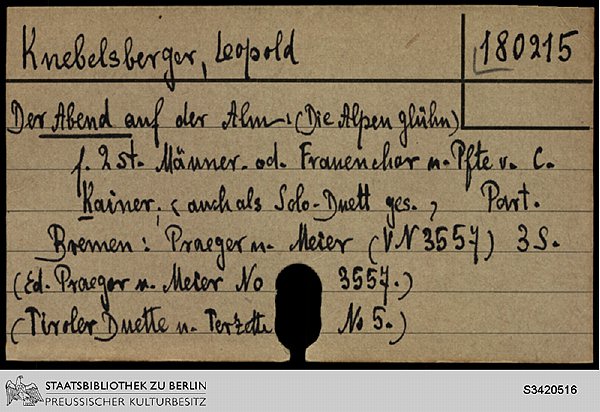 Knebelsberger, Leopold
180215
Der Abend auf der Alm: (Die Alpen glühn)
f. 2 st. Männer- od. Frauenchor u. Pfte v. C.
Kainer, < auch als Solo-Duett ges. > Part.
Bremen: Praeger u. Meier (VN 3557) 3 S.
(Ed. Praeger u. Meier No 3557.)
(Tiroler Duette u. Terzette No 5.)
STAATSBIBLIOTHEK ZU BERLIN
PREUSSISCHER KULTURBESITZ
S3420516